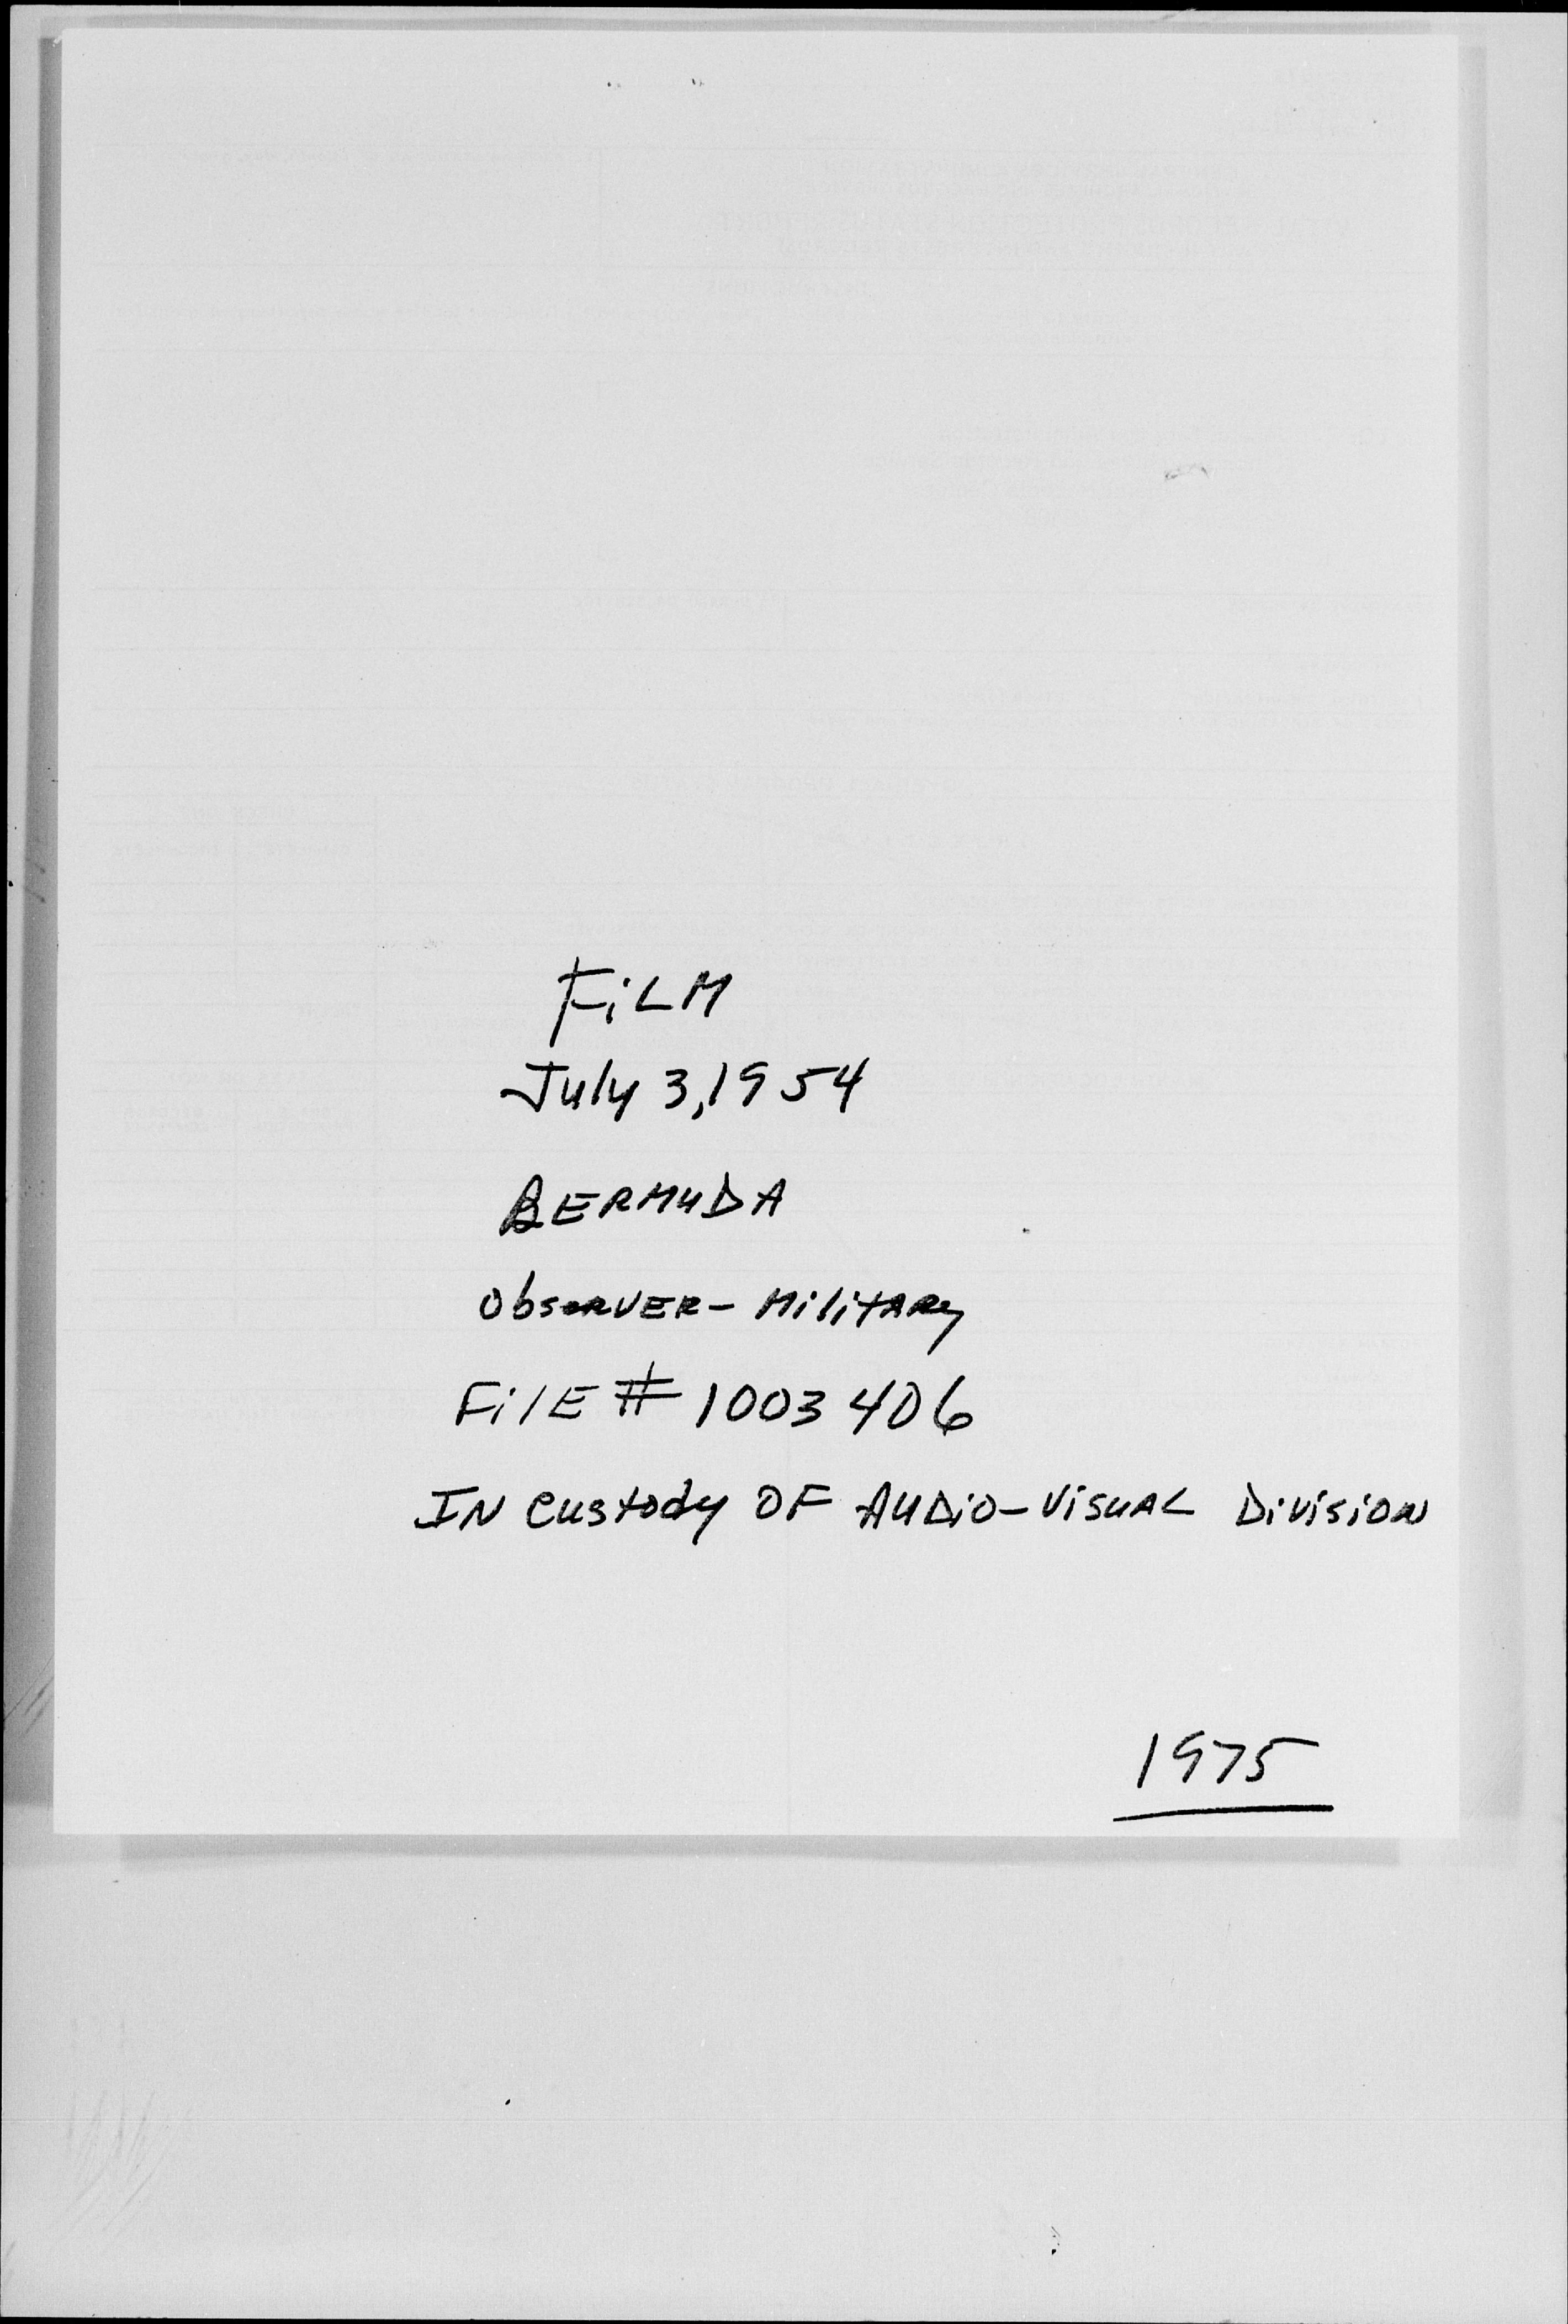 FiLM
July 3, 1954
BERMUDA
ObsERVER - MilitARy
FilE # 1003406
IN Custody OF AUDiO-ViSUAL DiViSiON
1975